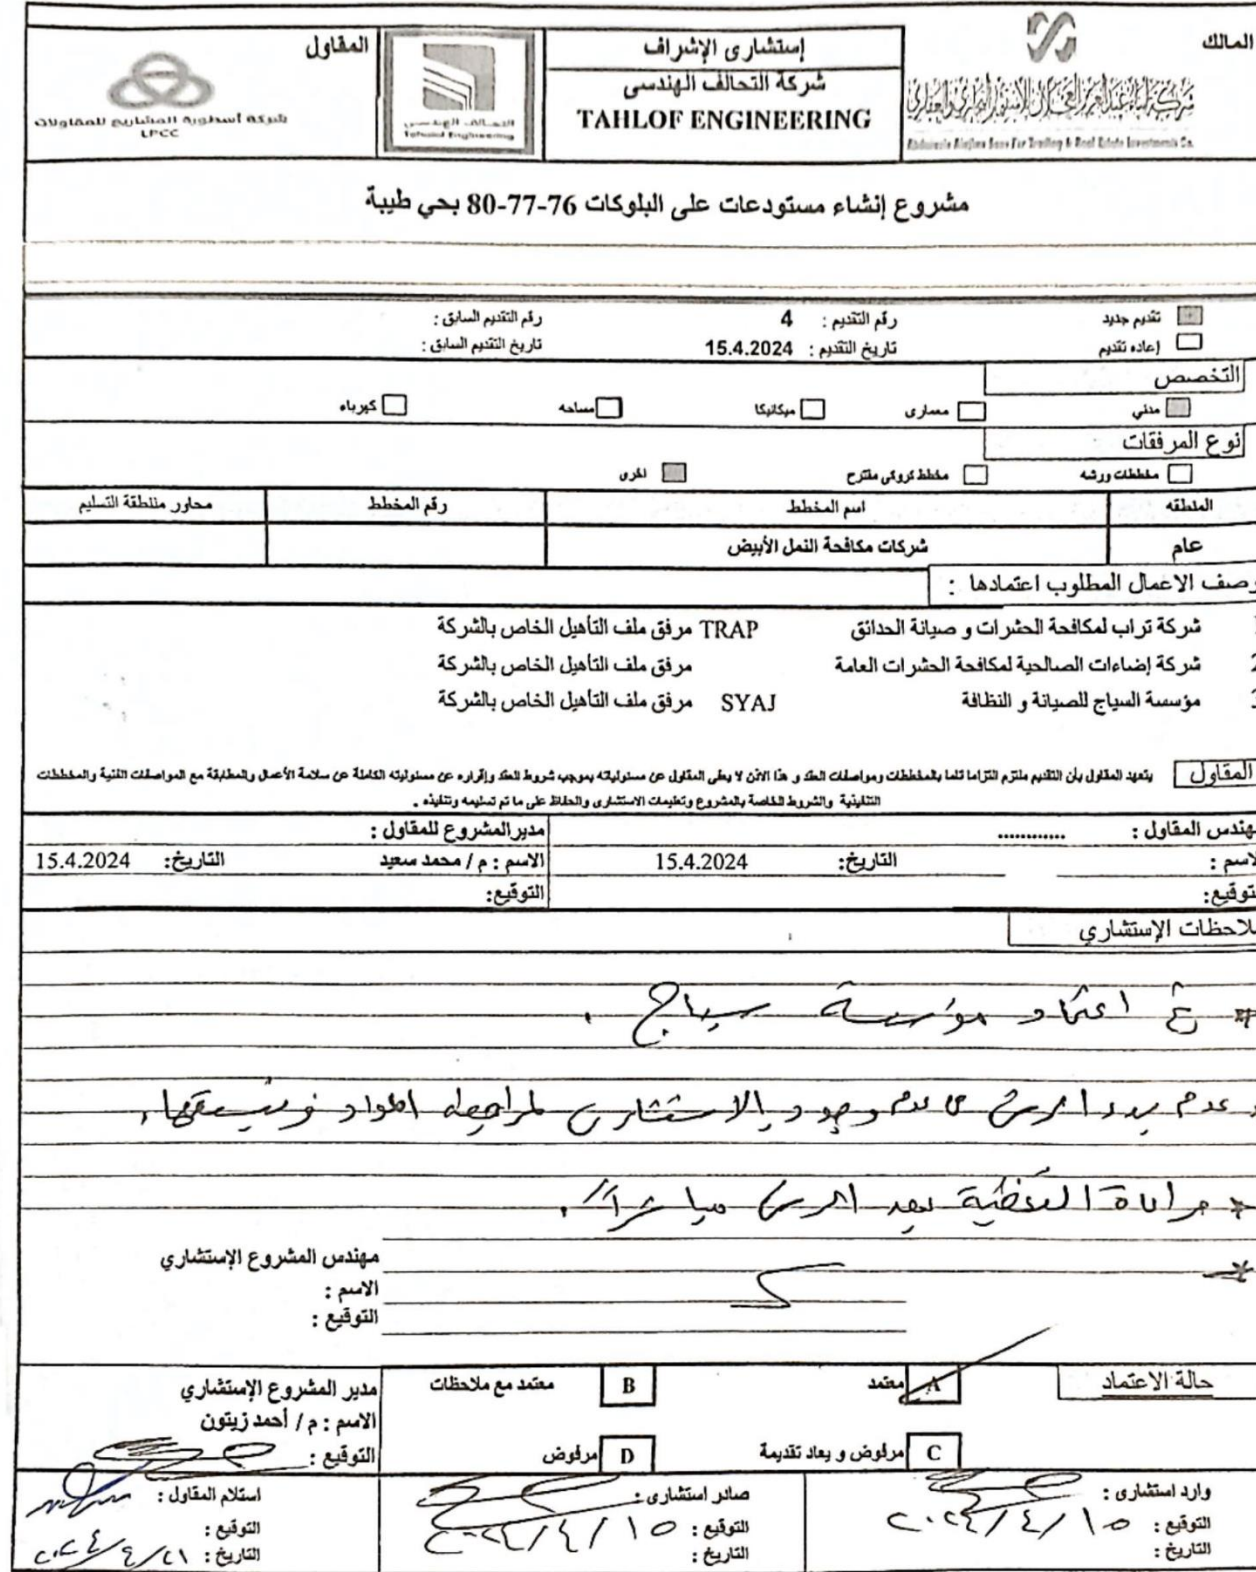 المالك
شركة أبناء عبدالعزيز العجلان للاستثمار التجاري والعقاري
Abdulaziz Alajlan Sons For Trading & Real Estate Investments Co.
إستشارى الإشراف
شركة التحالف الهندسى
TAHLOF ENGINEERING
التحالف الهندسي
Tahalof Engineering
المقاول
شركة أسطورة المشاريع للمقاولات
LPCC
مشروع إنشاء مستودعات على البلوكات 76-77-80 بحي طيبة
تقديم جديد رقم التقديم : 4 رقم التقديم السابق :
إعاده تقديم تاريخ التقديم : 15.4.2024 تاريخ التقديم السابق :
التخصص
مدني معمارى ميكانيكا مساحه كهرباء
نوع المرفقات
مخططات ورشه مخطط كروكى مقترح اخرى
المنطقه اسم المخطط رقم المخطط محاور منطقة التسليم
عام شركات مكافحة النمل الأبيض
وصف الاعمال المطلوب اعتمادها :
1 شركة تراب لمكافحة الحشرات و صيانة الحدائق TRAP مرفق ملف التأهيل الخاص بالشركة
2 شركة إضاءات الصالحية لمكافحة الحشرات العامة مرفق ملف التأهيل الخاص بالشركة
3 مؤسسة السياج للصيانة و النظافة SYAJ مرفق ملف التأهيل الخاص بالشركة
المقاول يتعهد المقاول بأن التقديم ملتزم التزاما تاما بالمخططات ومواصفات العقد و هذا الاذن لا يعفى المقاول عن مسئولياته بموجب شروط العقد وإقراره عن مسئوليته الكاملة عن سلامة الأعمال والمطابقة مع المواصفات الفنية والمخططات
التنفيذية والشروط الخاصة بالمشروع وتعليمات الاستشارى والحفاظ على ما تم تسليمه وتنفيذه .
مهندس المقاول : ............ مديرالمشروع للمقاول :
الاسم : التاريخ: 15.4.2024 الاسم : م / محمد سعيد التاريخ: 15.4.2024
التوقيع: التوقيع:
ملاحظات الإستشاري
* تم اعتماد مؤسسة سياج .
و عدم بدء الرش وجود الاستشارى لمراجعة المواد
* مراعاة التغطية بعد الرش مباشرة .
*
مهندس المشروع الإستشاري
الاسم :
التوقيع :
حالة الاعتماد A معتمد B معتمد مع ملاحظات
C مرفوض و يعاد تقديمة D مرفوض
مدير المشروع الإستشاري
الاسم : م / أحمد زيتون
التوقيع :
وارد استشارى : صادر استشارى : استلام المقاول :
التوقيع : ٢٠٢٤/٤/١٥ التوقيع : ٢٠٢٤/٤/١٥ التوقيع :
التاريخ : التاريخ : التاريخ : ٢٠٢٤/٤/٢١